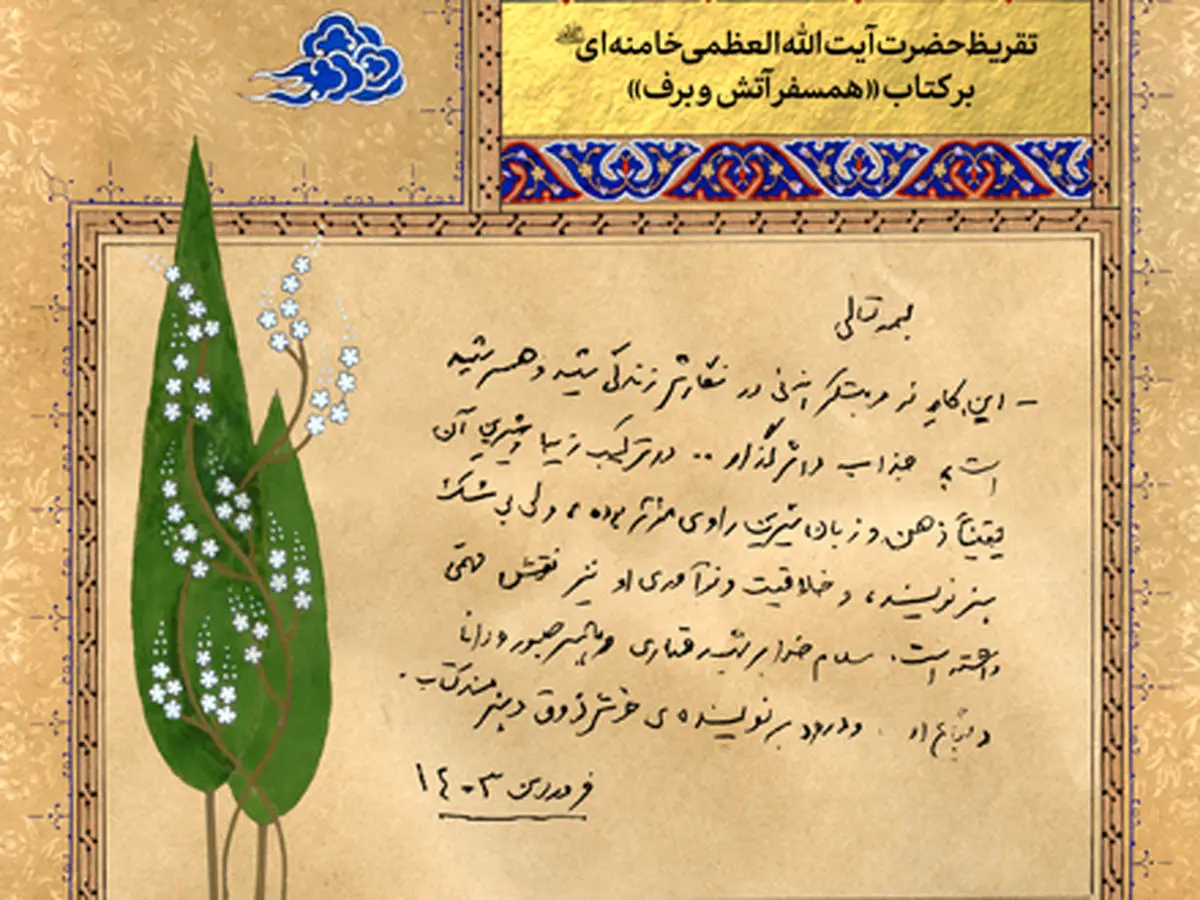 تقریظ حضرت آیت الله العظمی خامنه ای
بر کتاب «همسفر آتش و برف»
بسمه تعالی
- این کار نو و مبتکرانه‌ئی در نگارش زندگی شهید و همسر شهید
است؛ جذاب و اثرگذار .. در ترکیب زیبا و شیرین آن
یقیناً ذهن و زبان شیرین راوی مؤثر بوده، ولی بی شک
هنر نویسنده، و خلاقیت و نوآوری او نیز نقش مهمّی
داشته است. سلام خدا بر شهید قهاری و همسر صبور و دانا
و شجاع او. و درود بر نویسنده ی خوش ذوق و هنرمند کتاب.
فروردین ۱۴۰۳